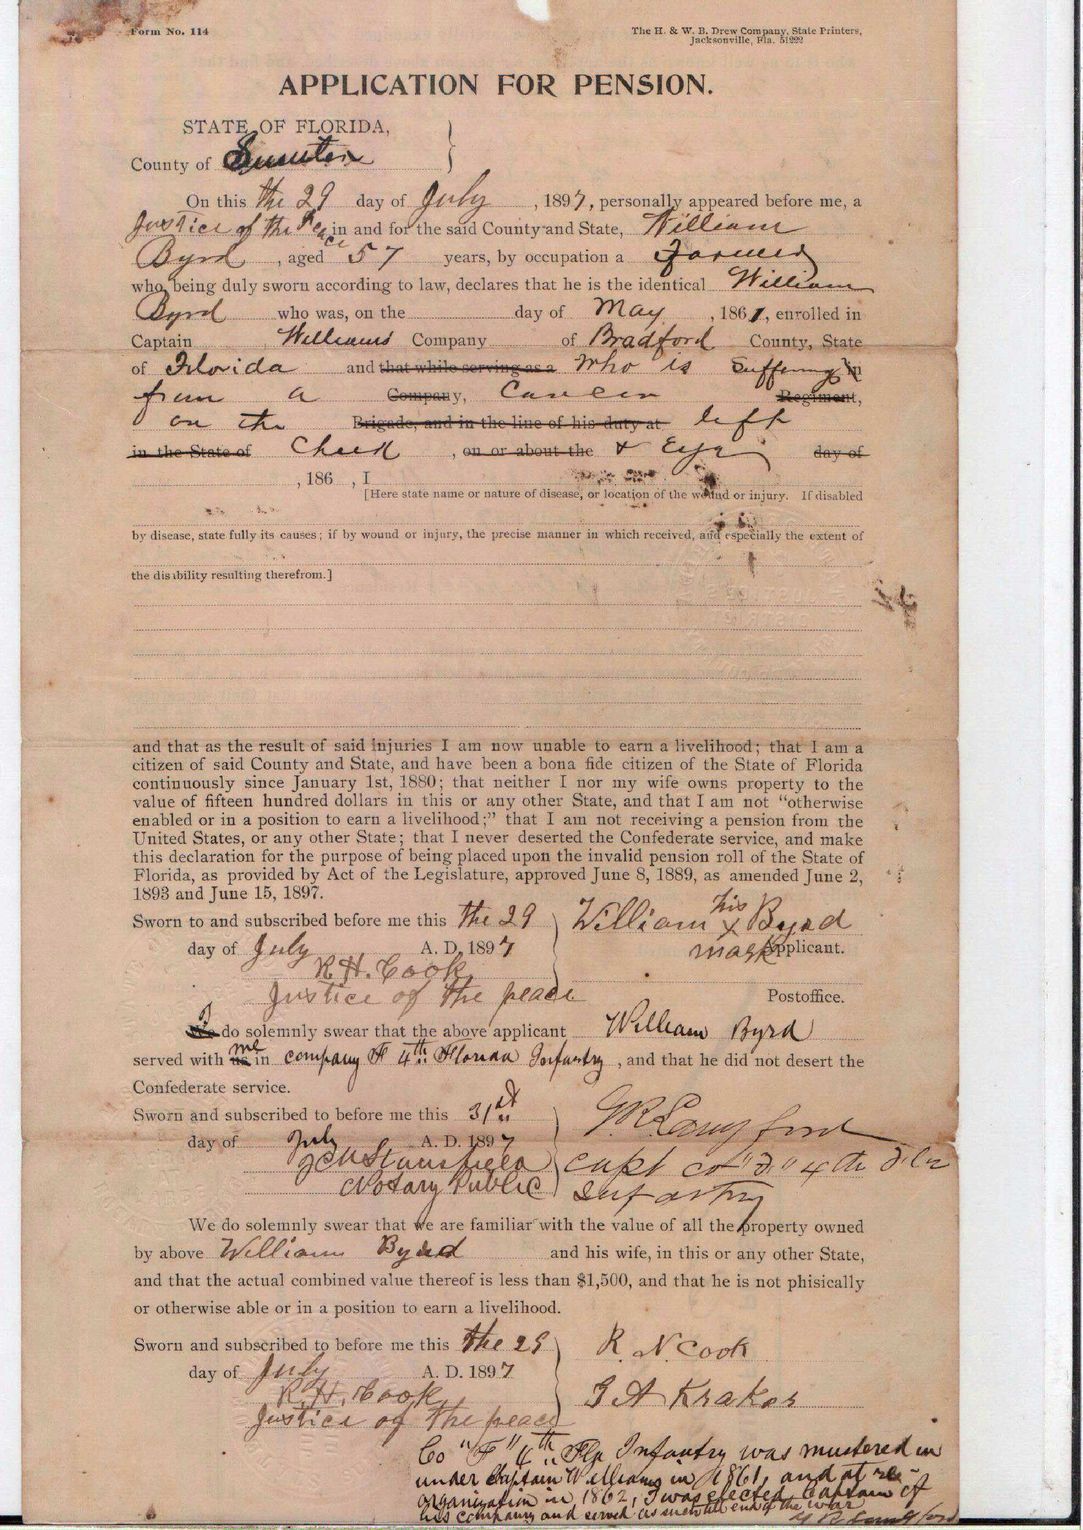 Form No. 114
The H. & W. B. Drew Company, State Printers,
Jacksonville, Fla. 51222
APPLICATION FOR PENSION.
STATE OF FLORIDA,
County of Sumter
On this the 29 day of July , 1897, personally appeared before me, a
Justice of the Peace in and for the said County and State, William
Byrd , aged 57 years, by occupation a Farmer
who being duly sworn according to law, declares that he is the identical William
Byrd who was, on the day of May , 1861, enrolled in
Captain Williams Company of Bradford County, State
of Florida and that while serving as a who is Suffering in
from a Company, Cancer Regiment,
on the Brigade, and in the line of his duty at left
in the State of Cheek , on or about the & Eye day of
, 186 , I
[Here state name or nature of disease, or location of the wound or injury. If disabled
by disease, state fully its causes; if by wound or injury, the precise manner in which received, and especially the extent of
the disability resulting therefrom.]
and that as the result of said injuries I am now unable to earn a livelihood; that I am a
citizen of said County and State, and have been a bona fide citizen of the State of Florida
continuously since January 1st, 1880; that neither I nor my wife owns property to the
value of fifteen hundred dollars in this or any other State, and that I am not "otherwise
enabled or in a position to earn a livelihood;" that I am not receiving a pension from the
United States, or any other State; that I never deserted the Confederate service, and make
this declaration for the purpose of being placed upon the invalid pension roll of the State of
Florida, as provided by Act of the Legislature, approved June 8, 1889, as amended June 2,
1893 and June 15, 1897.
Sworn to and subscribed before me this the 29 William his x Byrd
day of July A. D. 1897 mark Applicant.
R. H. Cook
Justice of the peace Postoffice.
I
We do solemnly swear that the above applicant William Byrd
served with us me in company F 4th Florida Infantry , and that he did not desert the
Confederate service.
Sworn and subscribed to before me this 31st
day of July A. D. 1897 Langford
Capt co "D" 4th Fla
Notary Public Infantry
We do solemnly swear that we are familiar with the value of all the property owned
by above William Byrd and his wife, in this or any other State,
and that the actual combined value thereof is less than $1,500, and that he is not phisically
or otherwise able or in a position to earn a livelihood.
Sworn and subscribed to before me this the 29 R. N. Cook
day of July A. D. 1897
R. H. Cook G A Kraker
Justice of the peace
Co "F" 4th Fla Infantry was mustered in
under Captain Williams in 1861, and at re-
organization in 1862, I was elected Captain of
his company and served as such till end of the war
Langford